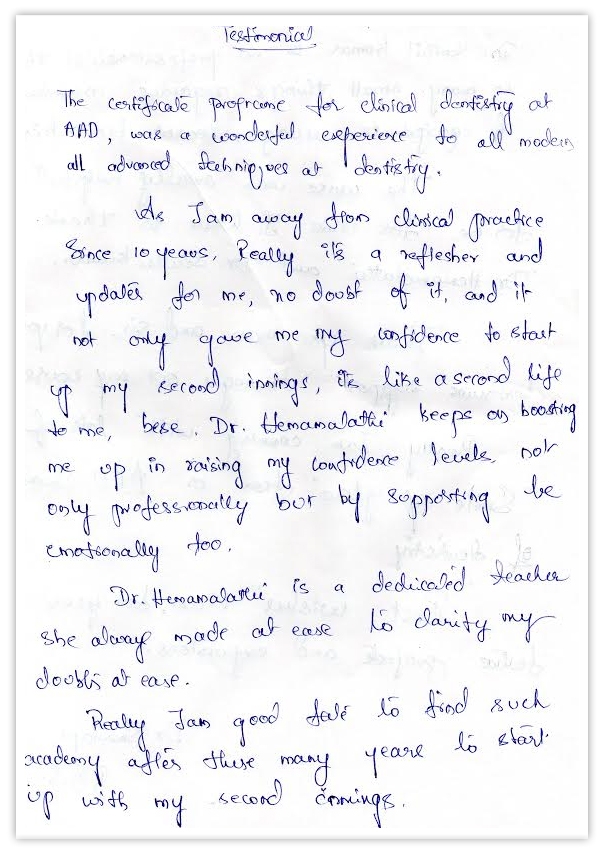 Testimonial
The certificate programe for clinical dentistry at
AAD, was a wonderful experience to all modern
all advanced techniques at dentistry.
As I am away from clinical practice
Since 10 years, Really it's a reflesher and
updates for me, no doubt of it, and it
not only gave me my confidence to start
up my second innings, it's like a second life
to me, bese. Dr. Hemamalathi keeps on boosting
me up in raising my confidence levels not
only professionally but by supporting be
emotionally too.
Dr. Hemamalathi is a dedicated teacher
she alway made at ease to clarity my
doubts at ease.
Really I am good fate to find such
academy after these many years to start
up with my second innings.